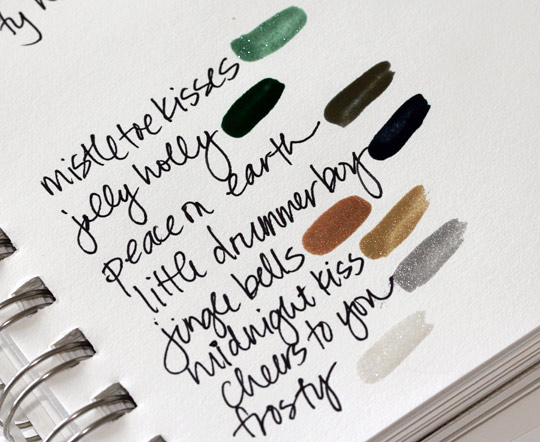 mistletoe kisses
jolly holly
peace on earth
little drummer boy
jingle bells
midnight kiss
cheers to you
frosty